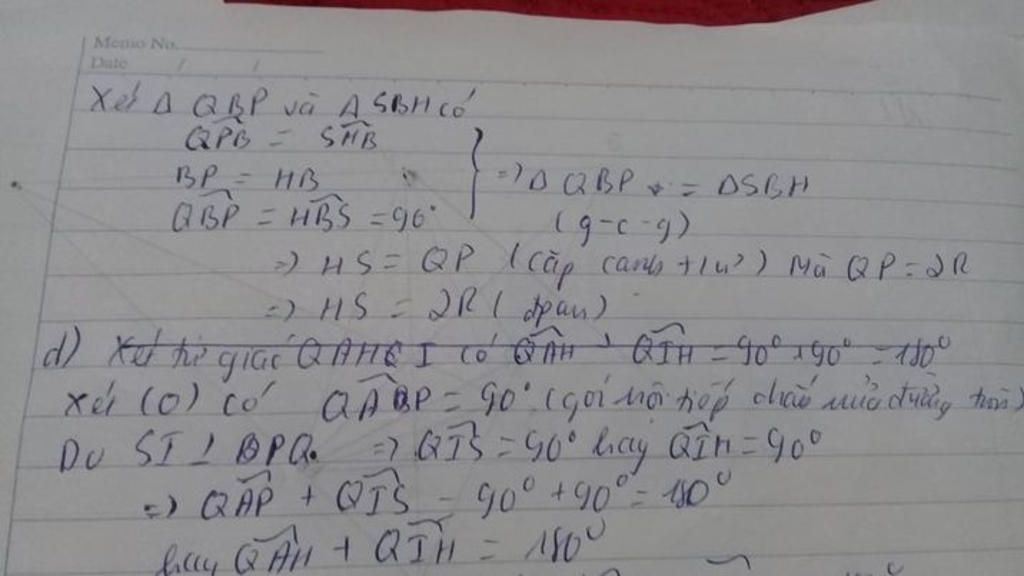 Memo No.
Date / /
Xét Δ QBP và Δ SBH có
QPB = SHB
BP = HB
QBP = HBS = 90° } => Δ QBP = ΔSBH
(g-c-g)
=> HS = QP (cặp cạnh t/ư²) Mà QP = 2R
=> HS = 2R (đpcm)
d) Xét tứ giác QAHI có QAH + QIH = 90° + 90° = 180°
Xét (O) có QABP = 90° (góc nội tiếp chắn nửa đường tròn)
Do SI ⊥ PQ. => QIS = 90° hay QIH = 90°
=> QAP + QIS = 90° + 90° = 180°
hay QAH + QIH = 180°